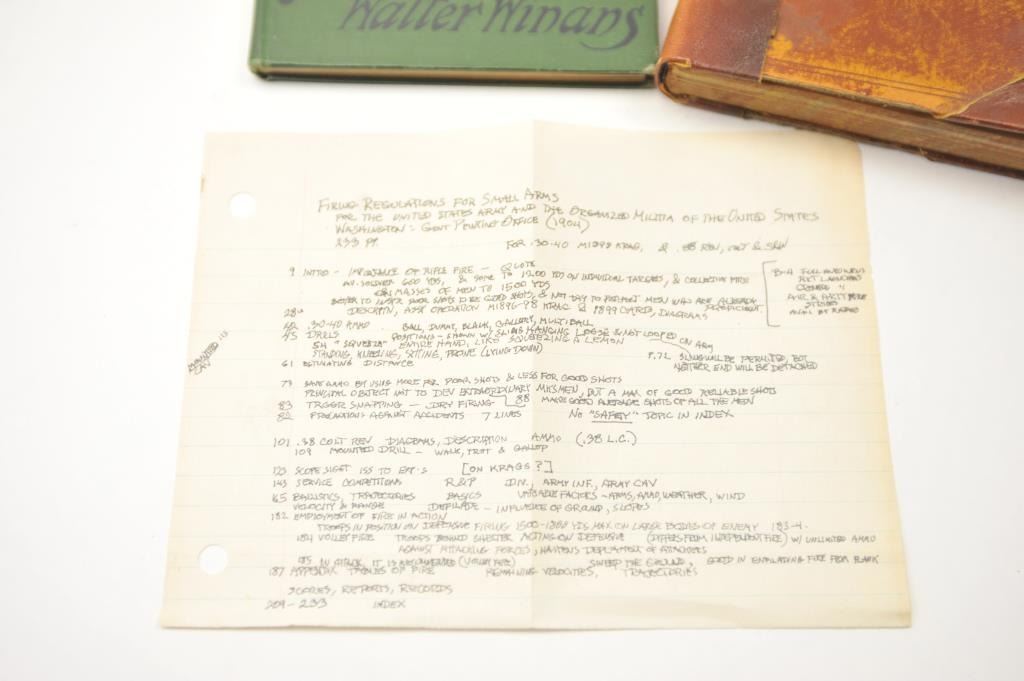 Walter Winans
FIRING REGULATIONS FOR SMALL ARMS
FOR THE UNITED STATES ARMY AND THE ORGANIZED MILITIA OF THE UNITED STATES
WASHINGTON: GOVT PRINTING OFFICE (1904)
233 PP. FOR .30-40 M1898 KRAG, & .38 REV,
9 INTRO - IMPORTANCE OF RIFLE FIRE - QUOTE
AV. SOLDIER 600 YDS, & SOME TO 1200 YDS ON INDIVIDUAL TARGETS, & COLLECTIVE FIRE
ON MASSES OF MEN TO 1500 YDS
BETTER TO MAKE POOR SHOTS TO BE GOOD SHOTS, & NOT TRY TO PERFECT MEN WHO ARE ALREADY PROFICIENT
28 DESCRIPTN, ASSY OPERATION M1896-98 KRAG & 1899 CARB, DIAGRAMS
42 .30-40 AMMO BALL, DUMMY, BLANK, GALLERY, MULTIBALL
45 DRILLS POSITIONS - SHOWN W/ SLING HANGING LOOSE & NOT LOOPED ON ARM
54 "SQUEEZE" ENTIRE HAND, LIKE SQUEEZING A LEMON
STANDING, KNEELING, SITTING, PRONE (LYING DOWN)
P.72 SLING WILL BE PERMITTED, BUT
NEITHER END WILL BE DETACHED
61 ESTIMATING DISTANCE
MOUNTED
CAV
73 SAVE AMMO BY USING MORE FOR POOR SHOTS & LESS FOR GOOD SHOTS
PRINCIPAL OBJECT NOT TO DEV EXTRAORDINARY MKSMEN, BUT A MAX OF GOOD RELIABLE SHOTS
83 TRIGGER SNAPPING - DRY FIRING 88 MAKE GOOD AVERAGE SHOTS OF ALL THE MEN
82 PRECAUTIONS AGAINST ACCIDENTS 7 LINES NO "SAFETY" TOPIC IN INDEX
101 .38 COLT REV DIAGRAMS, DESCRIPTION AMMO (.38 L.C.)
109 MOUNTED DRILL - WALK, TROT & GALLOP
123 SCOPE SIGHT ISS TO EXP.S [ON KRAGS?]
143 SERVICE COMPETITIONS R&P DIV., ARMY INF., ARMY CAV
165 BALLISTICS, TRAJECTORIES BASICS VARIABLE FACTORS - ARMS, AMMO, WEATHER, WIND
VELOCITY & RANGE DEFILADE - INFLUENCE OF GROUND, SLOPES
182 EMPLOYMENT OF FIRE IN ACTION
TROOPS IN POSITION ON DEFENSIVE FIRING 1500-1800 YDS MAX ON LARGE BODIES OF ENEMY 183-4.
184 VOLLEY FIRE TROOPS BEHIND SHELTER ACTING ON DEFENSIVE (DIFFERS FROM INDEPENDENT FIRE) W/ UNLIMITED AMMO
AGAINST ATTACKING FORCES, HASTENS DEPLOYMENT OF ATTACKERS
185 IN ATTACK, IT IS RECOMMENDED (VOLLEY FIRE) SWEEP THE GROUND, GOOD IN ENFILADING FIRE FROM FLANK
187 APPENDIX TABLES OF FIRE REMAINING VELOCITIES, TRAJECTORIES
SCORES, REPORTS, RECORDS
209-233 INDEX